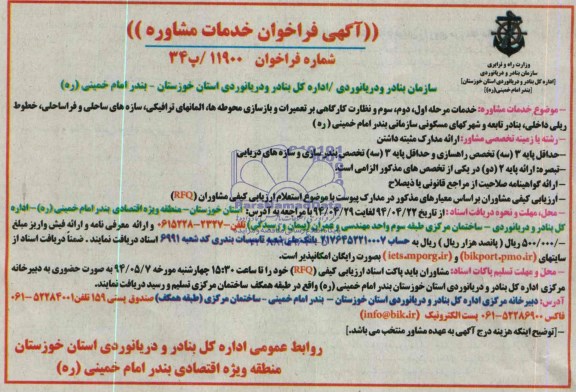 ((آگهی فراخوان خدمات مشاوره))
شماره فراخوان ۱۱۹۰۰/پ۳۴
وزارت راه و ترابری
سازمان بنادر و دریانوردی
اداره کل بنادر و دریانوردی استان خوزستان
(بندر امام خمینی(ره))
سازمان بنادر ودریانوردی /اداره کل بنادر ودریانوردی استان خوزستان - بندر امام خمینی (ره)
- موضوع خدمات مشاوره: خدمات مرحله اول، دوم، سوم و نظارت کارگاهی بر تعمیرات و بازسازی محوطه ها، المانهای ترافیکی، سازه های ساحلی و فراساحلی، خطوط
ریلی داخلی، بنادر تابعه و شهرکهای مسکونی سازمانی بندر امام خمینی (ره)
- رشته یا زمینه تخصصی مشاور: ارائه مدارک مثبته داشتن
-حداقل پایه ۳ (سه) تخصص راهسازی و حداقل پایه ۳ (سه) تخصص بندر سازی و سازه های دریایی
-تبصره: ارائه پایه ۲ (دو) در یکی از تخصص های مذکور الزامی است.
- ارائه گواهینامه صلاحیت از مراجع قانونی یا ذیصلاح
- ارزیابی کیفی مشاوران براساس معیارهای مذکور در مدارک پیوست با موضوع استعلام ارزیابی کیفی مشاوران (RFQ)
- محل، مهلت و نحوه دریافت اسناد: از تاریخ ۹۴/۰۴/۲۲ لغایت ۹۴/۰۴/۲۹ با مراجعه به آدرس: استان خوزستان- منطقه ویژه اقتصادی بندر امام خمینی (ره)-اداره
کل بنادر و دریانوردی - ساختمان مرکزی طبقه سوم واحد مهندسی و عمران (پیمان و رسیدگی) تلفن ۲۳۲۷-۰۶۱۵۲۲۸ و ارائه معرفی نامه و ارائه فیش واریز مبلغ
۵۰۰/۰۰۰/- ریال ( پانصد هزار ریال ) ریال به حساب ۲۱۷۶۴۵۲۲۱۰۰۰۷ بانک ملی شعبه تاسیسات بندری کد شعبه ۶۹۹۱ اسناد دریافت نمایند . ضمناً دریافت اسناد از
سایتهای (bikport.pmo.ir) و (iets.mporg.ir) بصورت رایگان امکانپذیر است.
- محل و مهلت تسلیم پاکات اسناد: مشاوران باید پاکت اسناد ارزیابی کیفی (RFQ) خود را تا ساعت ۱۵:۳۰ چهارشنبه مورخه ۹۴/۰۵/۷ به صورت حضوری به دبیرخانه
مرکزی اداره کل بنادر و دریانوردی استان خوزستان بندر امام خمینی (ره) واقع در طبقه همکف ساختمان مرکزی تسلیم و رسید دریافت نمایند.
آدرس: دبیرخانه مرکزی اداره کل بنادر و دریانوردی استان خوزستان - بندر امام خمینی - ساختمان مرکزی (طبقه همکف) صندوق پستی ۱۵۹ تلفن ۵۲۲۸۴۰۰۱-۰۶۱
فاکس ۵۲۲۸۶۹۰۰-۰۶۱ پست الکترونیک (info@bik.ir)
-[توضیح اینکه هزینه درج آگهی به عهده مشاور منتخب می باشد.]
روابط عمومی اداره کل بنادر و دریانوردی استان خوزستان
منطقه ویژه اقتصادی بندر امام خمینی (ره)